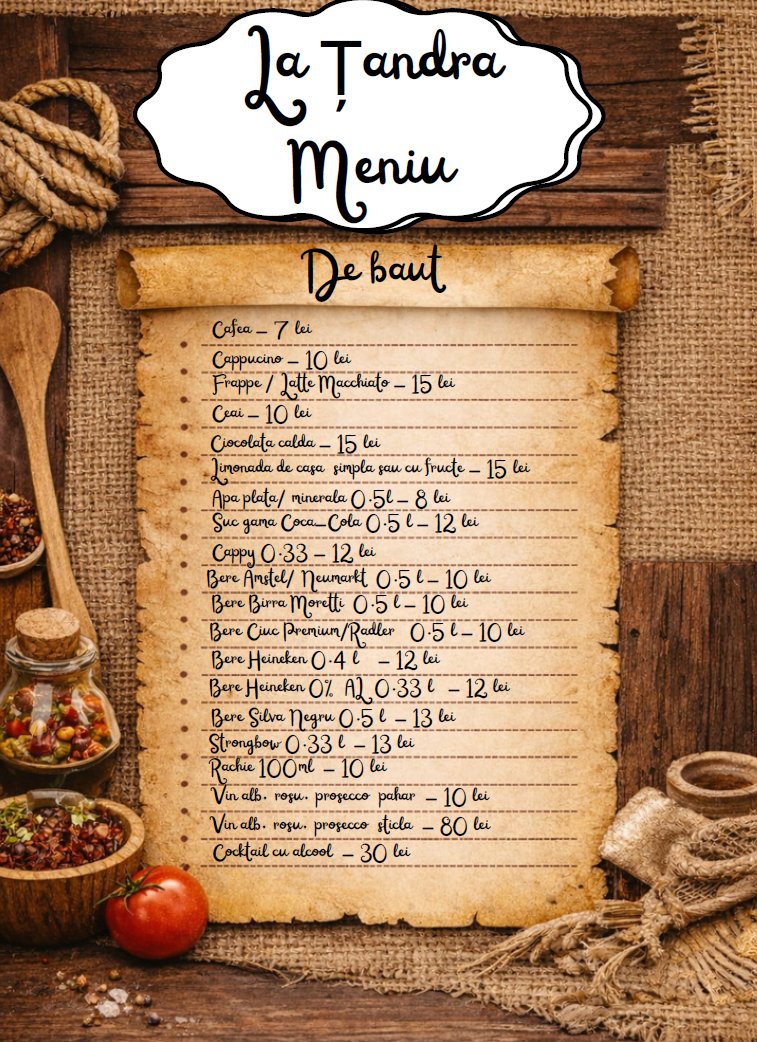 La Țandra
Meniu
De baut
Cafea – 7 lei
Cappucino – 10 lei
Frappe / Latte Macchiato – 15 lei
Ceai – 10 lei
Ciocolata calda – 15 lei
Limonada de casa simpla sau cu fructe – 15 lei
Apa plata/ minerala 0.5l – 8 lei
Suc gama Coca-Cola 0.5 l – 12 lei
Cappy 0.33 – 12 lei
Bere Amstel/ Neumarkt 0.5 l – 10 lei
Bere Birra Moretti 0.5 l – 10 lei
Bere Ciuc Premium/Radler 0.5 l – 10 lei
Bere Heineken 0.4 l – 12 lei
Bere Heineken 0% AL 0.33 l – 12 lei
Bere Silva Negru 0.5 l – 13 lei
Strongbow 0.33 l – 13 lei
Rachie 100ml – 10 lei
Vin alb, rosu, prosecco pahar – 10 lei
Vin alb, rosu, prosecco sticla – 80 lei
Cocktail cu alcool – 30 lei